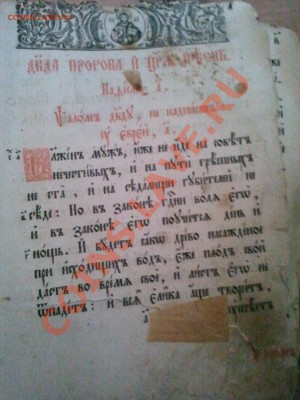 Дв҃да пророка и҆ цр҃ѧ пѣснь
Каѳисма а҃
Ѱаломъ дв҃ду, не надписанъ
ѹ҆ еврей, а҃
Блаженъ мужъ, иже не иде на совѣтъ
нечестивыхъ, и҆ на пути грѣшныхъ
не ста, и҆ на сѣдалищи губителей не
сѣде: Но въ законѣ гдн҃и волѧ є҆гѡ̀,
и҆ въ законѣ є҆гѡ̀ поучитсѧ день и҆
нощь. И҆ будетъ ꙗ҆кѡ древо насажденое
при исходищихъ водъ, є҆же плодъ свой
дастъ во времѧ свое, и҆ листъ є҆гѡ̀ не
ѿпадетъ: и҆ всѧ є҆лика аще творитъ,
COINS.LAVE.RU